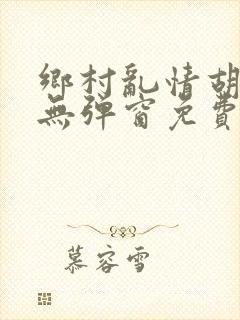 鄉村亂情胡
無彈窗免費
慕容雪